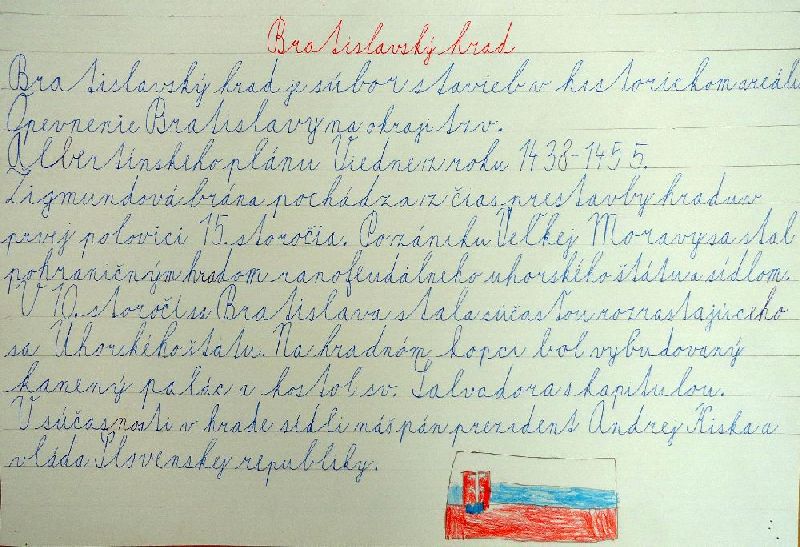 Bratislavský hrad
Bratislavský hrad je súbor stavieb v historickom areáli
Opevnenie Bratislavy na okraji tzv.
Albertínskeho plánu Viedne z roku 1438-1455.
Zigmundová brána pochádza z čias prestavby hradu v
prvej polovici 15. storočia. Po zániku Veľkej Moravy sa stal
pohraničným hradom ranofeudálneho uhorského štátu a sídlom.
V 10. storočí sa Bratislava stala súčasťou rozrastajúceho
sa Uhorského štatu. Na hradnóm kopci bol vybudovaný
kanený palác v kostol sv. Salvadora s kapitulou.
V súčasnosti v hrade sídli náš pán prezident Andrej Kiska a
vláda Slovenskej republiky.